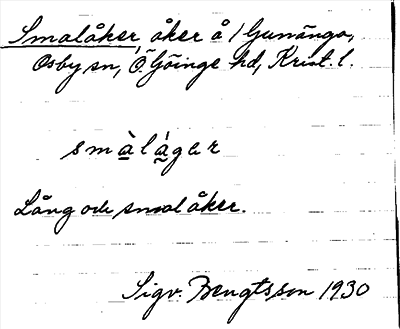 Smalåker åker å 1 Gunänga,
Osby sn, Ö. Göinge hd, Krist. l.
smàláger
Lång och smal åker.
Sigv. Bengtsson 1930